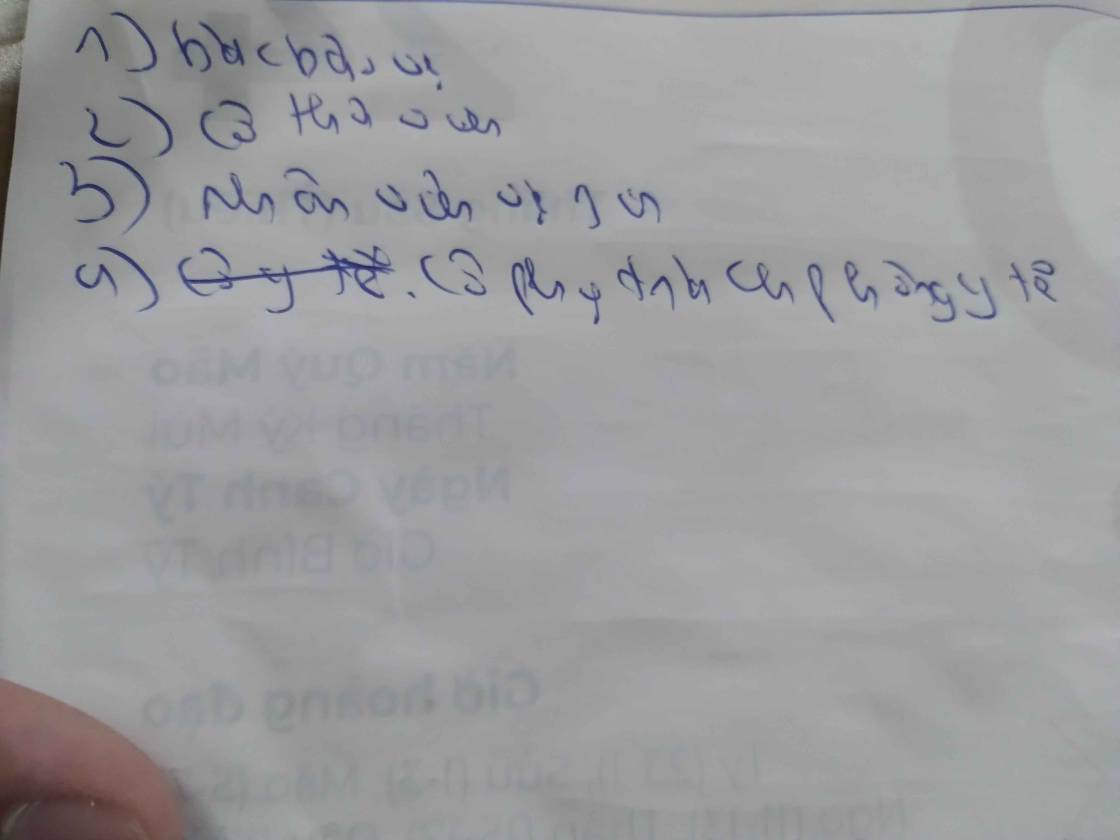 1) bác bảo vệ
2) Cô thư viện
3) nhân viên vệ sin
4) Cô y tế. Cô phụ trách phòng y tế
Năm Quý Mão
Tháng Kỷ Mùi
Ngày Canh Tý
Giờ Bính Tý
Giờ hoàng đạo